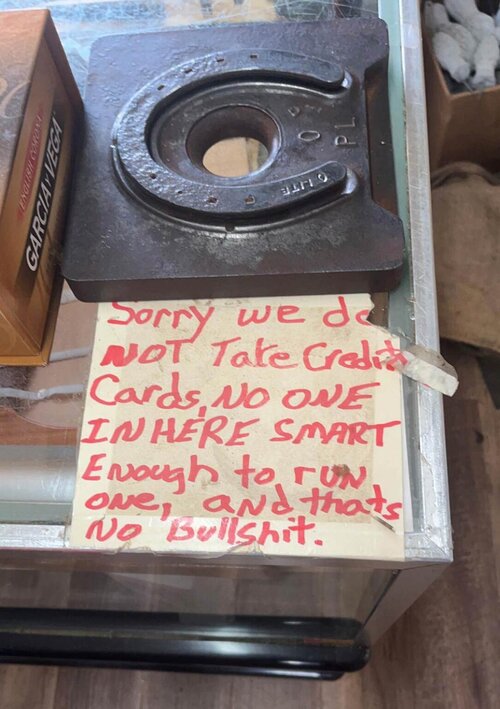 ENGLISH CORONA
GARCIA Y VEGA
O
PL
O LITE
Sorry we do
NOT Take Credit
Cards, NO ONE
IN HERE SMART
Enough to run
one, and thats
No Bullshit.